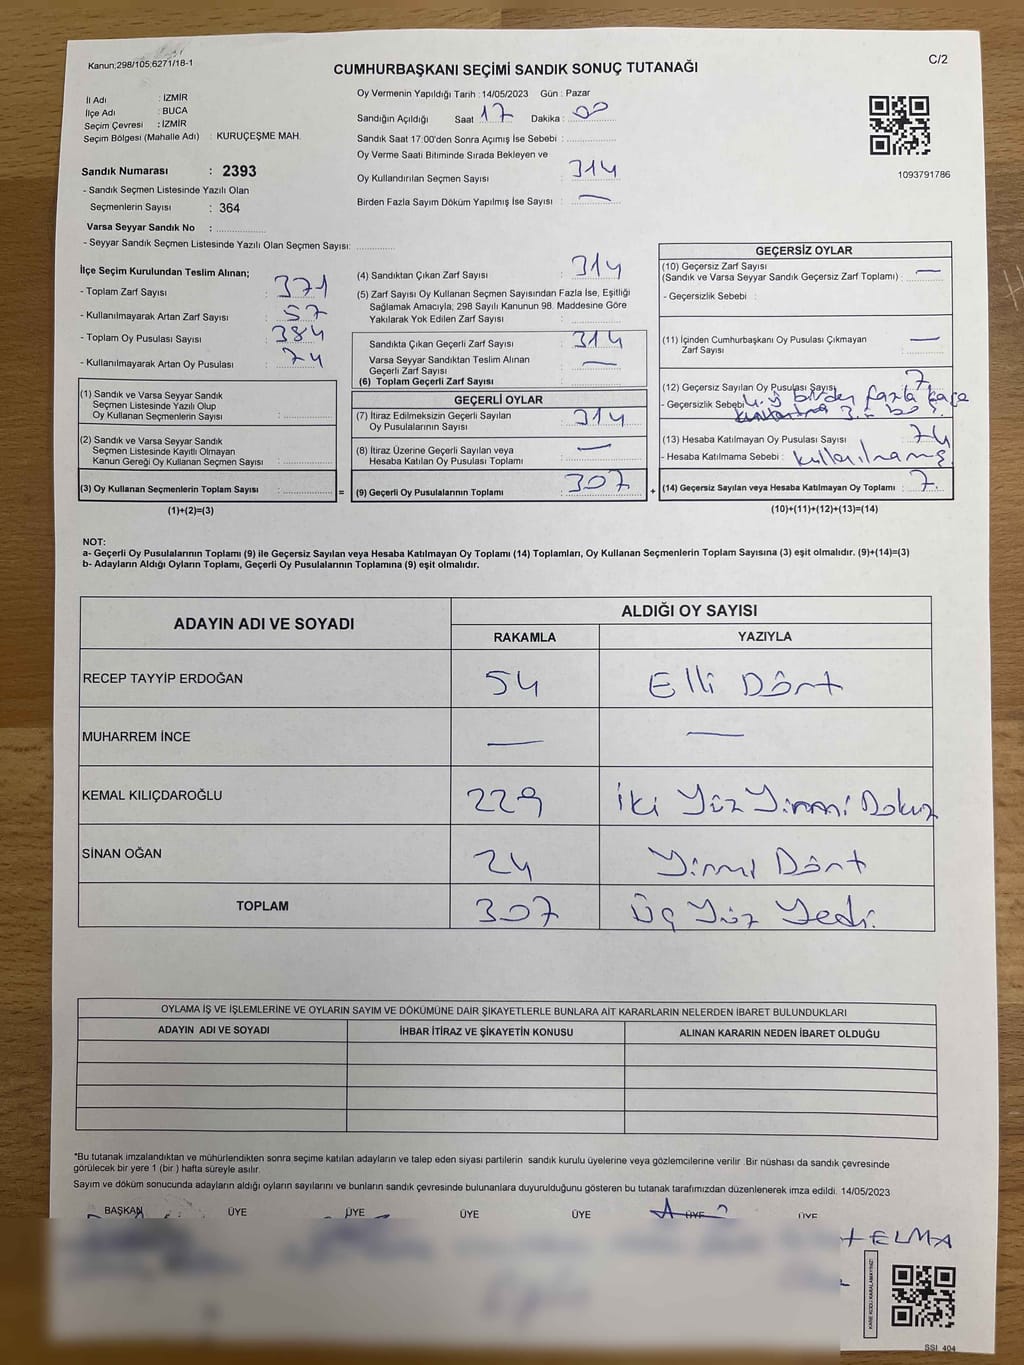 Kanun:298/105;6271/18-1
CUMHURBAŞKANI SEÇİMİ SANDIK SONUÇ TUTANAĞI
C/2
İl Adı : İZMİR
İlçe Adı : BUCA
Seçim Çevresi : İZMİR
Seçim Bölgesi (Mahalle Adı) : KURUÇEŞME MAH.
Sandık Numarası : 2393
- Sandık Seçmen Listesinde Yazılı Olan
Seçmenlerin Sayısı : 364
Varsa Seyyar Sandık No :
- Seyyar Sandık Seçmen Listesinde Yazılı Olan Seçmen Sayısı:
Oy Vermenin Yapıldığı Tarih : 14/05/2023 Gün : Pazar
Sandığın Açıldığı Saat 17 Dakika : 00
Sandık Saat 17:00'den Sonra Açımış İse Sebebi :
Oy Verme Saati Bitiminde Sırada Bekleyen ve
Oy Kullandırılan Seçmen Sayısı : 314
Birden Fazla Sayım Döküm Yapılmış İse Sayısı : —
1093791786
İlçe Seçim Kurulundan Teslim Alınan;
- Toplam Zarf Sayısı : 371
- Kullanılmayarak Artan Zarf Sayısı : 57
- Toplam Oy Pusulası Sayısı : 384
- Kullanılmayarak Artan Oy Pusulası : 74
(1) Sandık ve Varsa Seyyar Sandık
Seçmen Listesinde Yazılı Olup
Oy Kullanan Seçmenlerin Sayısı :
(2) Sandık ve Varsa Seyyar Sandık
Seçmen Listesinde Kayıtlı Olmayan
Kanun Gereği Oy Kullanan Seçmen Sayısı :
(3) Oy Kullanan Seçmenlerin Toplam Sayısı :
(1)+(2)=(3)
(4) Sandıktan Çıkan Zarf Sayısı : 314
(5) Zarf Sayısı Oy Kullanan Seçmen Sayısından Fazla İse, Eşitliği
Sağlamak Amacıyla; 298 Sayılı Kanunun 98. Maddesine Göre
Yakılarak Yok Edilen Zarf Sayısı :
Sandıkta Çıkan Geçerli Zarf Sayısı : 314
Varsa Seyyar Sandıktan Teslim Alınan
Geçerli Zarf Sayısı : —
(6) Toplam Geçerli Zarf Sayısı :
GEÇERLİ OYLAR
(7) İtiraz Edilmeksizin Geçerli Sayılan
Oy Pusulalarının Sayısı : 314
(8) İtiraz Üzerine Geçerli Sayılan veya
Hesaba Katılan Oy Pusulası Toplamı : —
= (9) Geçerli Oy Pusulalarının Toplamı : 307 +
GEÇERSİZ OYLAR
(10) Geçersiz Zarf Sayısı
(Sandık ve Varsa Seyyar Sandık Geçersiz Zarf Toplamı) : —
- Geçersizlik Sebebi :
(11) İçinden Cumhurbaşkanı Oy Pusulası Çıkmayan
Zarf Sayısı : —
(12) Geçersiz Sayılan Oy Pusulası Sayısı 7
- Geçersizlik Sebebi birden fazla
(13) Hesaba Katılmayan Oy Pusulası Sayısı : 74
- Hesaba Katılmama Sebebi : kullanılmamış
(14) Geçersiz Sayılan veya Hesaba Katılmayan Oy Toplamı : 7.
(10)+(11)+(12)+(13)=(14)
NOT:
a- Geçerli Oy Pusulalarının Toplamı (9) ile Geçersiz Sayılan veya Hesaba Katılmayan Oy Toplamı (14) Toplamları, Oy Kullanan Seçmenlerin Toplam Sayısına (3) eşit olmalıdır. (9)+(14)=(3)
b- Adayların Aldığı Oyların Toplamı, Geçerli Oy Pusulalarının Toplamına (9) eşit olmalıdır.
ADAYIN ADI VE SOYADI
ALDIĞI OY SAYISI
RAKAMLA YAZIYLA
RECEP TAYYİP ERDOĞAN 54 Elli Dört
MUHARREM İNCE — —
KEMAL KILIÇDAROĞLU 229 İki Yüz Yirmi Dokuz
SİNAN OĞAN 24 Yirmi Dört
TOPLAM 307 Üç Yüz Yedi.
OYLAMA İŞ VE İŞLEMLERİNE VE OYLARIN SAYIM VE DÖKÜMÜNE DAİR ŞİKAYETLERLE BUNLARA AİT KARARLARIN NELERDEN İBARET BULUNDUKLARI
ADAYIN ADI VE SOYADI İHBAR İTİRAZ VE ŞİKAYETİN KONUSU ALINAN KARARIN NEDEN İBARET OLDUĞU
*Bu tutanak imzalandıktan ve mühürlendikten sonra seçime katılan adayların ve talep eden siyasi partilerin sandık kurulu üyelerine veya gözlemcilerine verilir .Bir nüshası da sandık çevresinde
görülecek bir yere 1 (bir ) hafta süreyle asılır.
Sayım ve döküm sonucunda adayların aldığı oyların sayılarını ve bunların sandık çevresinde bulunanlara duyurulduğunu gösteren bu tutanak tarafımızdan düzenlenerek imza edildi. 14/05/2023
BAŞKAN ÜYE ÜYE ÜYE ÜYE ÜYE ÜYE
KARE KODU KARALAMAYINIZ!
SSİ_404